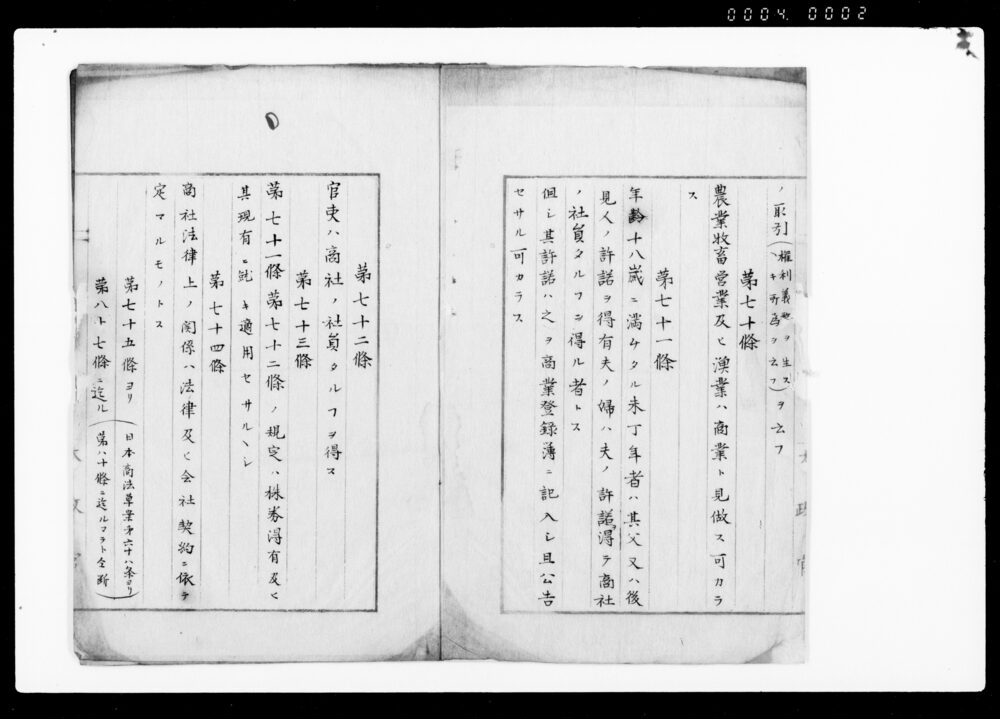 0004. 0002
ノ取引(權利義務ヲ生スヘキ所爲ヲ云フ)ヲ云フ
第七十條
農業牧畜営業及ヒ漁業ハ商業ト見做ス可カラ
ス
第七十一條
年齡十八歳ニ満サタル未丁年者ハ其父又ハ後
見人ノ許諾ヲ得有夫ノ婦ハ夫ノ許諾得テ商社
ノ社員タルヿヲ得ル者トス
但シ其許諾ハ之ヲ商業登録簿ニ記入シ且公告
セサル可カラス
第七十二條
官吏ハ商社ノ社員タルヿヲ得ス
第七十三條
第七十一條第七十二條ノ規定ハ株券得有及ヒ
其現有ニ就キ適用セサルヘシ
第七十四條
商社法律上ノ関係ハ法律及ヒ会社契約ニ依テ
定マルモノトス
第七十五條ヨリ(日本商法草案第六十八条ヨリ
第八十七條ニ迄ル 第八十條ニ迄ルヿラト仝断)
太政官